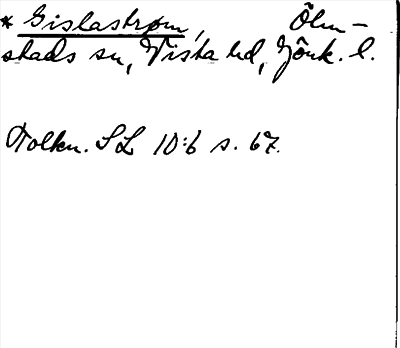 * Gislastrøm, Ölm-
stads sn, Vista hd, Jönk. l.
Tolkn. SL 10:6 s. 67.